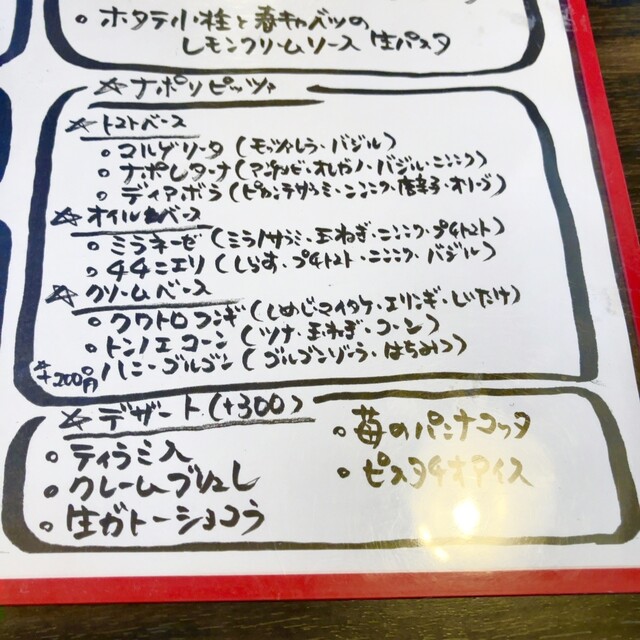 。ホタテ小柱と春キャベツの
レモンクリームソース 生パスタ
☆ナポリピッツァ
☆トマトベース
。マルゲリータ(モッツァレラ・バジル)
。ナポレターナ(アンチョビ・オレガノ・バジル・ニンニク)
。ディアボラ(ピカンテサラミ・ニンニク・唐辛子・オリーブ)
☆オイルベース
。ミラネーゼ(ミラノサラミ・玉ねぎ・ニンニク・プチトマト)
。チチニエリ(しらす・プチトマト・ニンニク・バジル)
☆クリームベース
。クワトロフンギ(しめじ・マイタケ・エリンギ・しいたけ)
。トンノエコーン(ツナ・玉ねぎ・コーン)
+200円 ハニーゴルゴン(ゴルゴンゾーラ・はちみつ)
☆デザート(+300)
。ティラミス
。クレームブリュレ
。生ガトーショコラ
。苺のパンナコッタ
。ピスタチオアイス